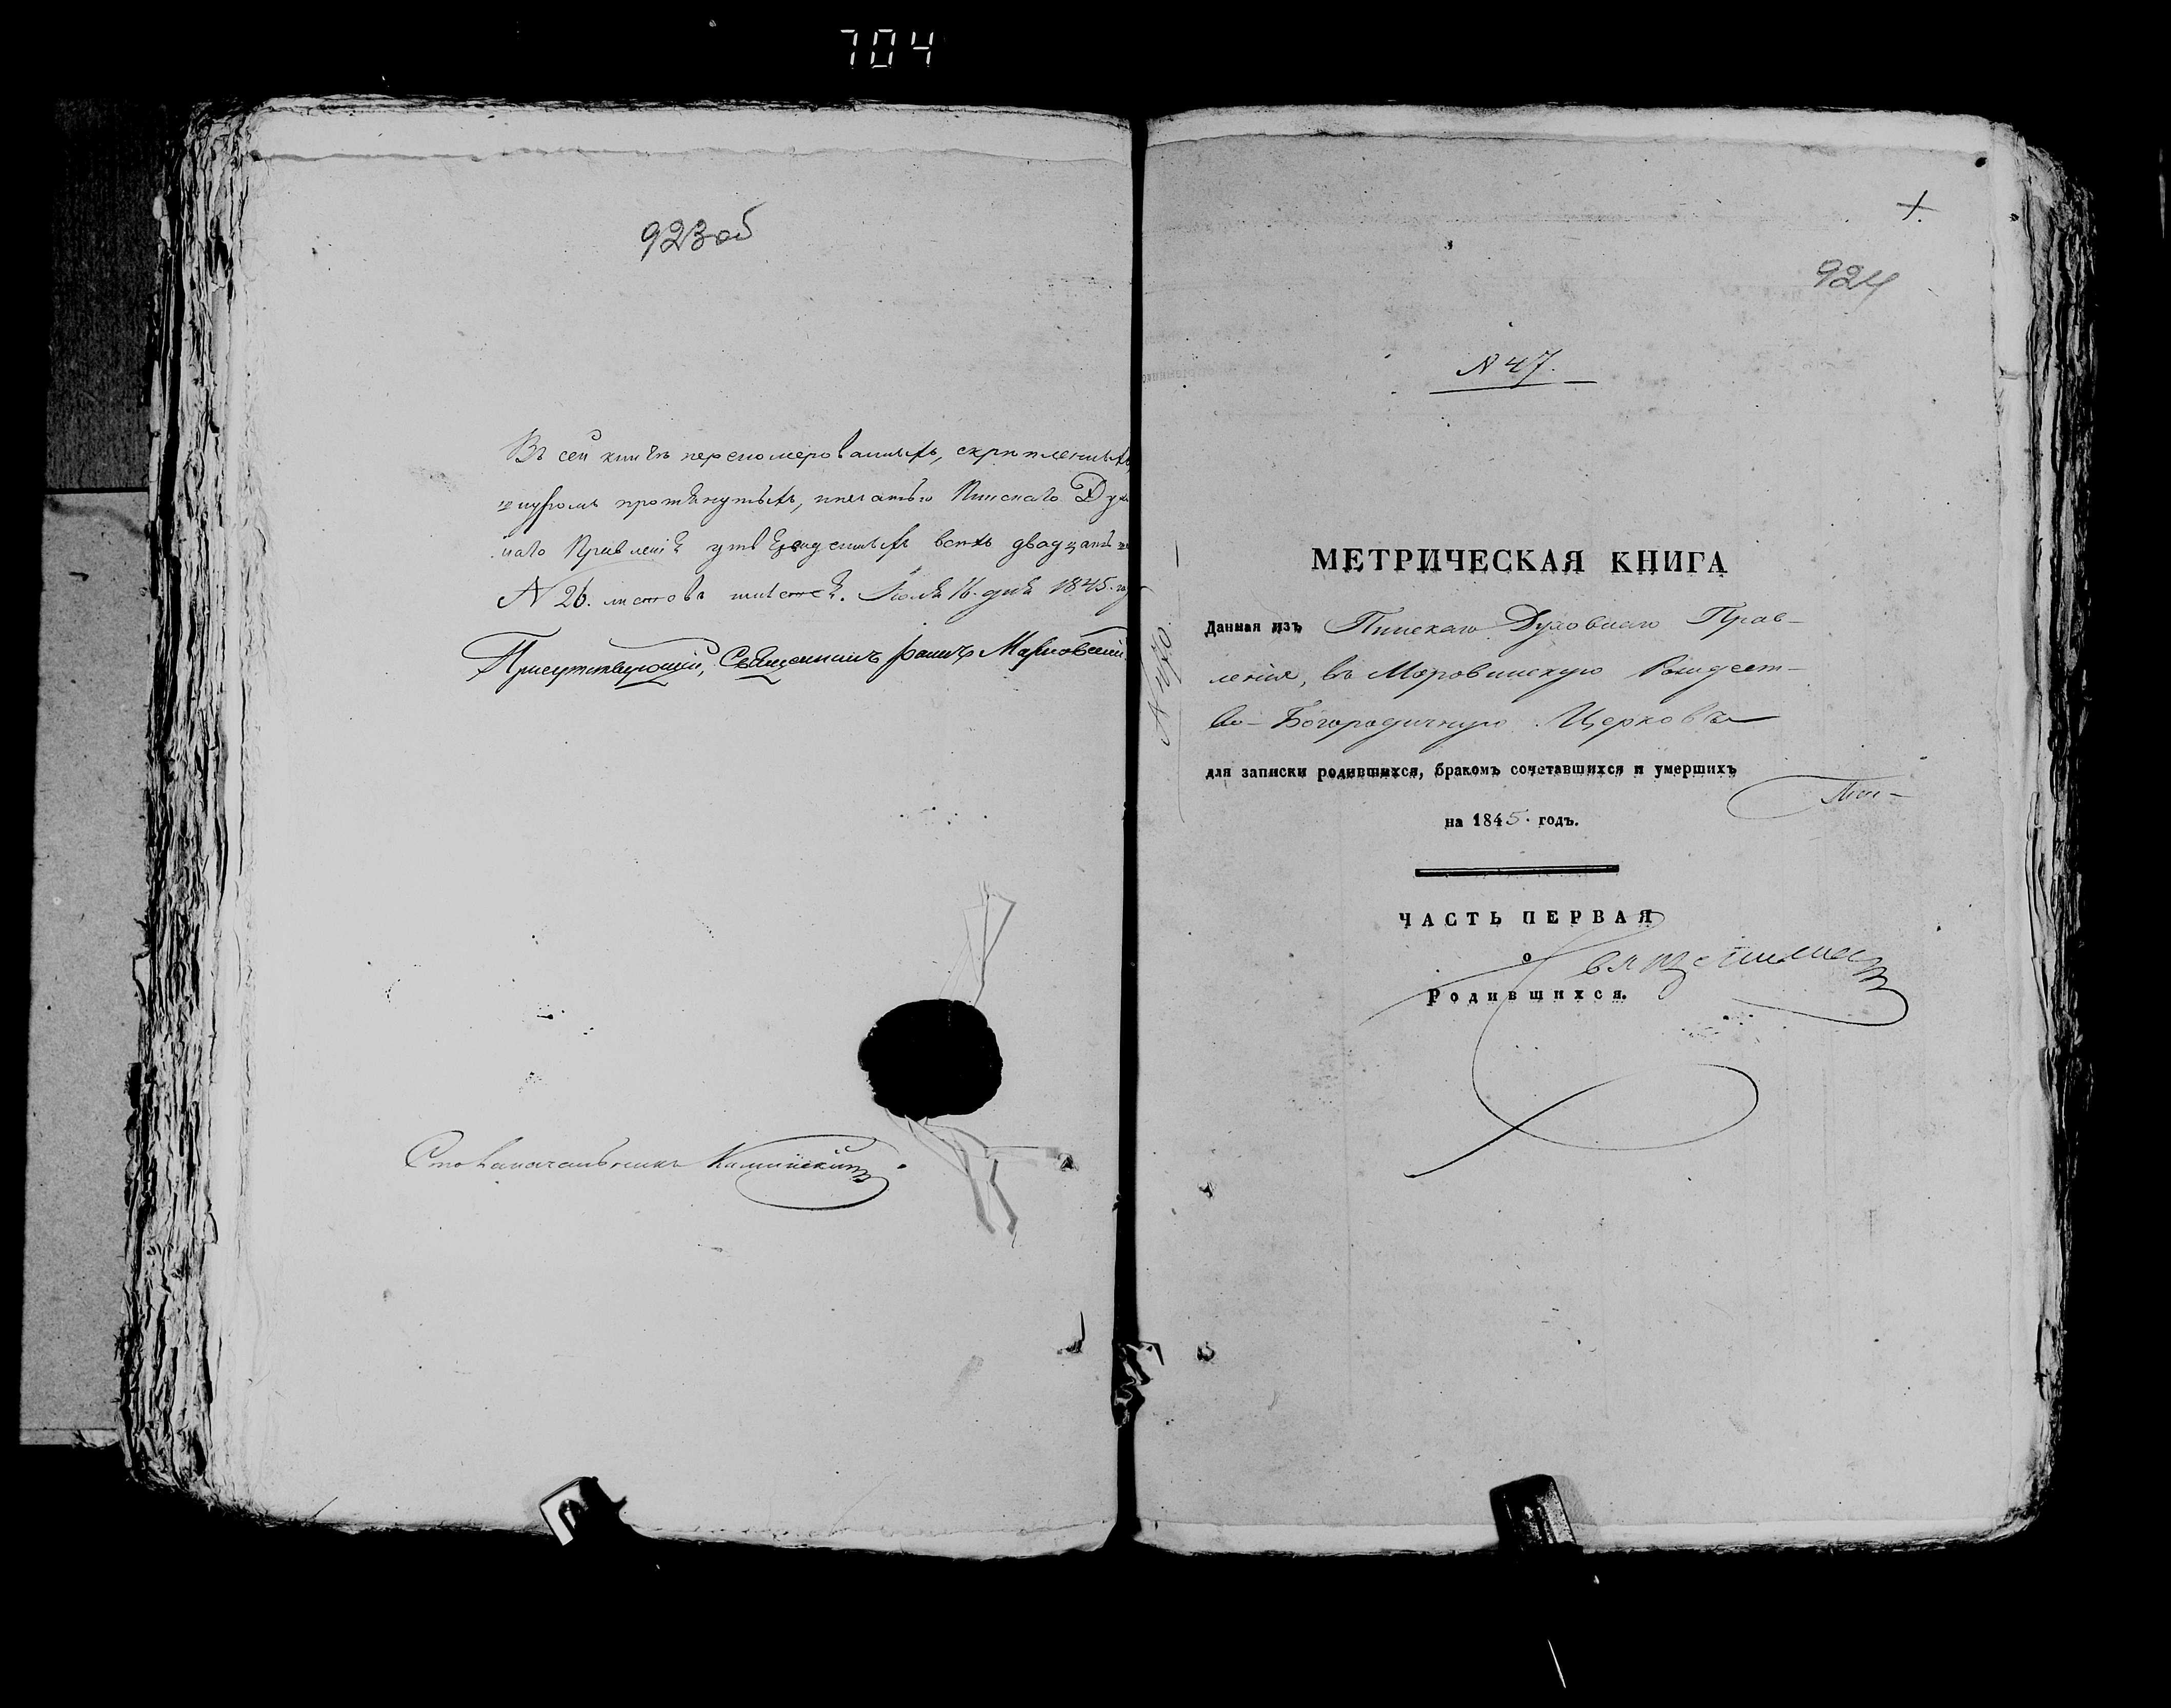 704
923об
Въ сей книгѣ перономерованныхъ, скрѣпленныхъ,
шнуромъ протянутыхъ, печатью Пинскаго Дух
наго Правленія утвержденныхъ всѣхъ двадцать
N 26. листовъ шесть. Іюля 16. дня 1845. го
Присутствующій, Священникъ Марковскій
Столоначальникъ Каминскій
924
N 47.
МЕТРИЧЕСКАЯ КНИГА
Данная изъ Пинскаго Духовнаго Прав-
ленія, въ Моровинскую Рождест-
во-Богородичную Церковь
для записки родившихся, бракомъ сочетавшихся и умершихъ
Пин-
на 1845. годъ.
ЧАСТЬ ПЕРВАЯ
о
Родившихся.
Священник